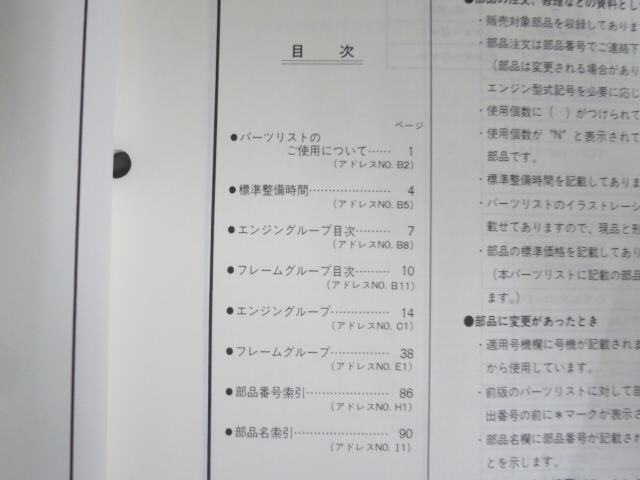 目 次
ページ
●パーツリストの
ご使用について…… 1
(アドレスNO. B2)
●標準整備時間………………… 4
(アドレスNO. B5)
●エンジングループ目次……… 7
(アドレスNO. B8)
●フレームグループ目次……… 10
(アドレスNO. B11)
●エンジングループ…………… 14
(アドレスNO. C1)
●フレームグループ…………… 38
(アドレスNO. E1)
●部品番号索引………………… 86
(アドレスNO. H1)
●部品名索引…………………… 90
(アドレスNO. I1)
●部品の注文、修理などの資料とし
・販売対象部品を収録してありま
・部品注文は部品番号でご連絡下
(部品は変更される場合があり
エンジン型式記号を必要に応じ
・使用個数に( )がつけられて
・使用個数が“N”と表示されて
部品です。
・標準整備時間を記載してありま
・パーツリストのイラストレーシ
載せてありますので、現品と形
・部品の標準価格を記載してあり
(本パーツリストに記載の部品
ます。)
●部品に変更があったとき
・適用号機欄に号機が記載されま
から使用しています。
・前版のパーツリストに対して部
出番号の前に＊マークが表示さ
・部品名欄に部品番号が記載され
とを示します。